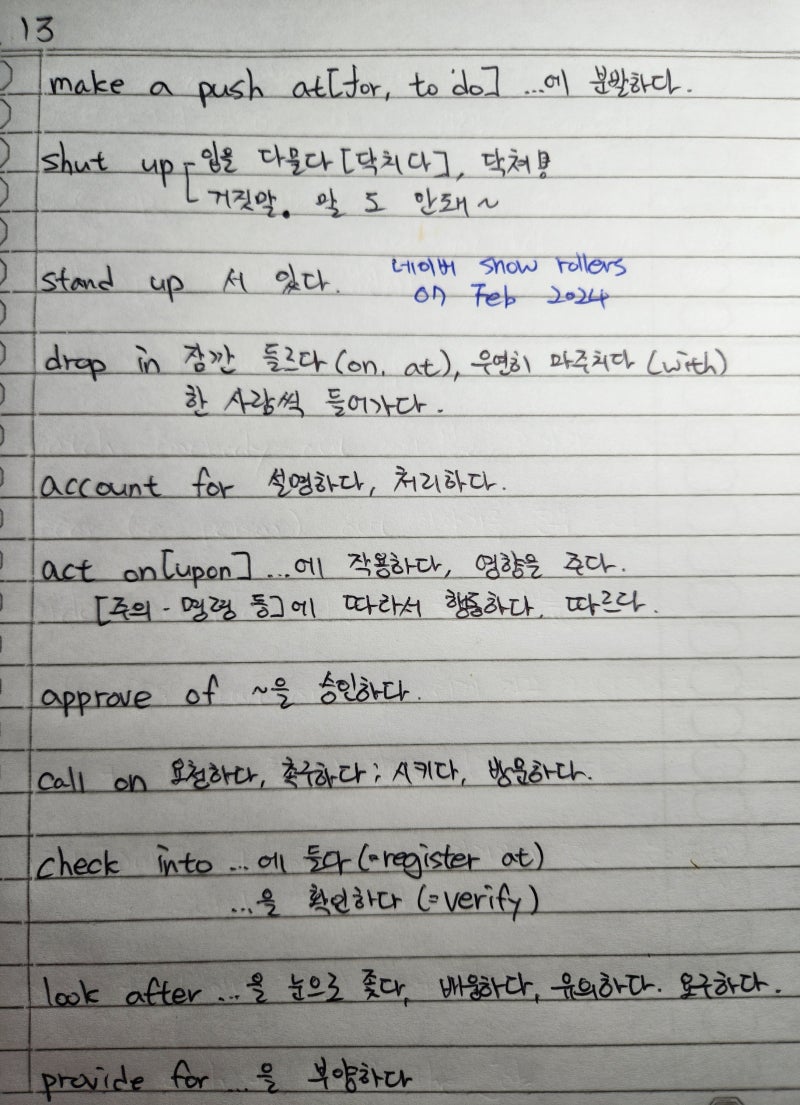 13
make a push at[for, to do] ...에 분발하다.
shut up 입을 다물다 [닥치다], 닥쳐!
거짓말. 말 도 안돼~
stand up 서 있다.
네이버 snow rollers
07 Feb 2024
drop in 잠깐 들르다 (on, at), 우연히 마주치다 (with)
한 사람씩 들어가다.
account for 설명하다, 처리하다.
act on[upon] ...에 작용하다, 영향을 주다.
[주의·명령 등]에 따라서 행동하다, 따르다.
approve of ~을 승인하다.
call on 요청하다, 촉구하다; 시키다, 방문하다.
check into ...에 들다 (=register at)
...을 확인하다 (=verify)
look after ...을 눈으로 좇다, 배웅하다, 유의하다. 요구하다.
provide for ...을 부양하다